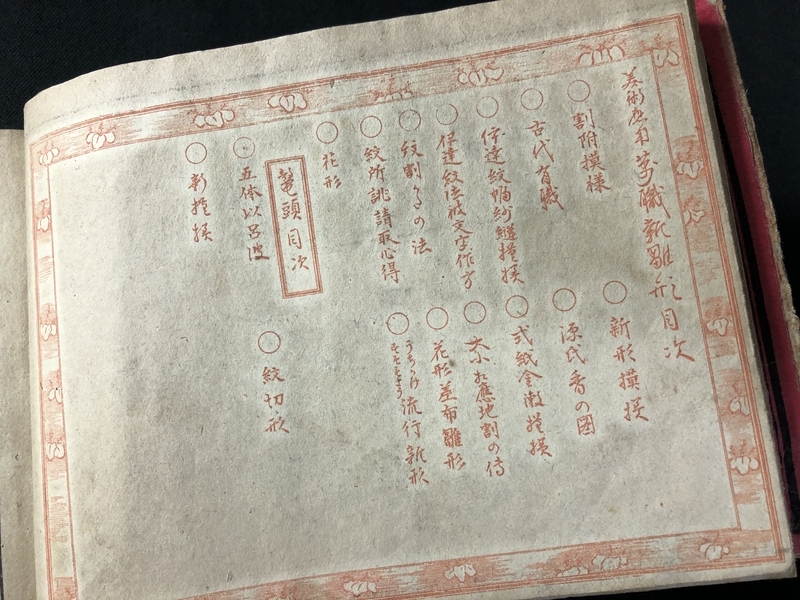 美術応用萬職新雛形目次
○割附摸様
○新形摸様
○古代有職
○源氏香の図
○伊達紋幅紗縫摸様
○式紙金激摸様
○伊達紋崩文字作方
○大小相應地割の傳
○紋割うの法
○花形並布雛形
○紋所誂請取心得
○流行雛形
○花形
鼇頭目次
○五体以呂波
○紋切形
○新摸様